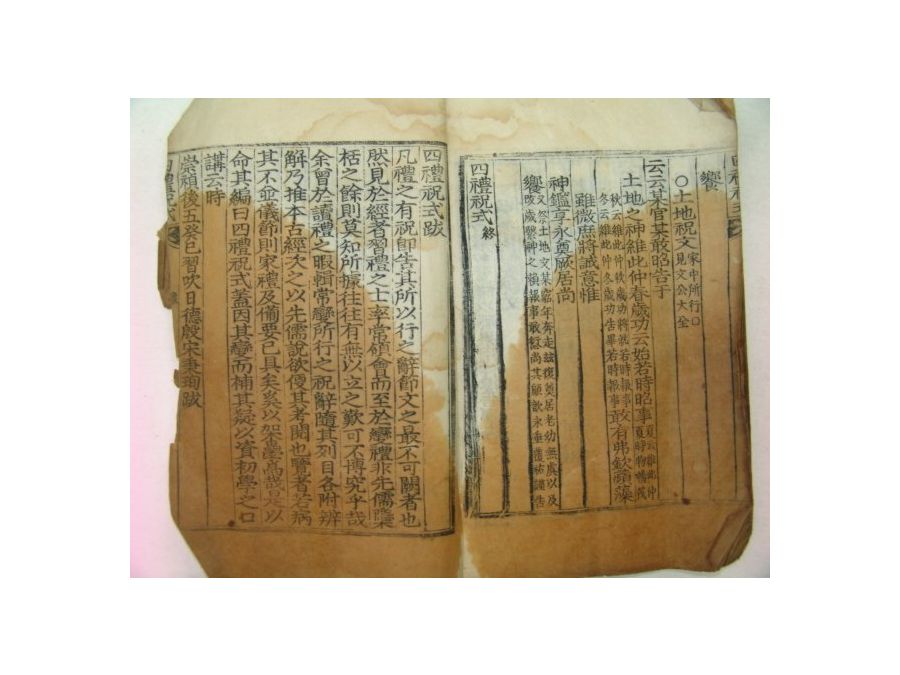 饗
○土地祝文 家中所行
見文公大全
云云某官某敢昭告于
土地之神維此仲春歲功云始若時昭事 夏云維此仲
夏時物暢茂
秋云維此仲秋歲功將就若時報事
冬云維此仲冬歲功告畢若時報事 敢有弗欽蘋藻
雖微庶將誠意惟
神鑑享永奠厥居尚
饗
四禮祝式 終
四禮祝式跋
凡禮之有祝即告其所以行之辭節文之最不可闕者也
然見於經者習禮之士率常領會而至於變禮非先儒檃
栝之餘則莫知所據往往有無以立之歎可不博究乎哉
余曾於讀禮之暇輯常變所行之祝辭隨其列目各附辨
解乃推本古經次之以先儒說欲便其考閱也覽者若病
其不並儀節則家禮及備要已具矣奚以加 爲是以
命其編曰四禮祝式蓋因其變而補其疑以資初學之口
講云時
崇禎後五癸巳習吹日德殷宋秉珣跋